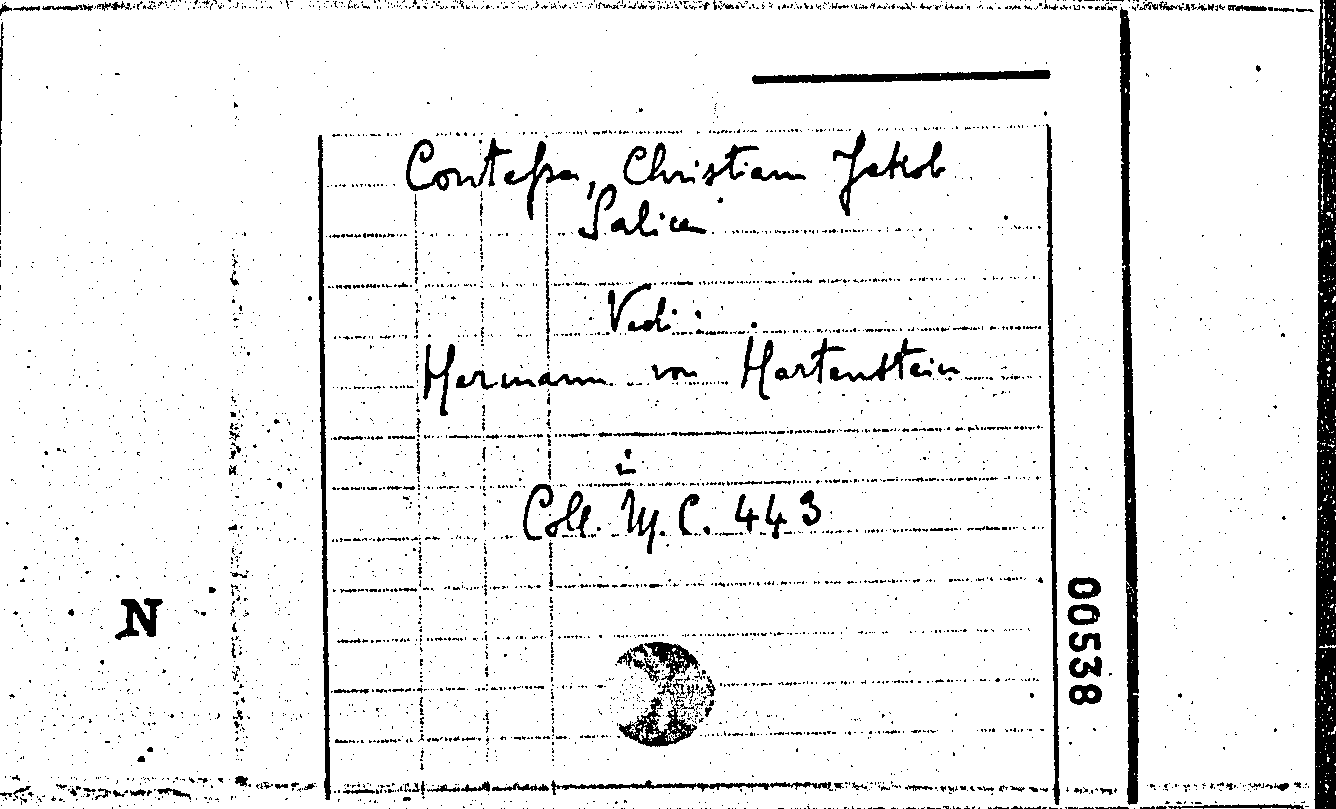 Conteßa, Christian Jakob
Salice
Vedi:
Hermann von Hartenstein
in
Coll. M. C. 443
N
00538